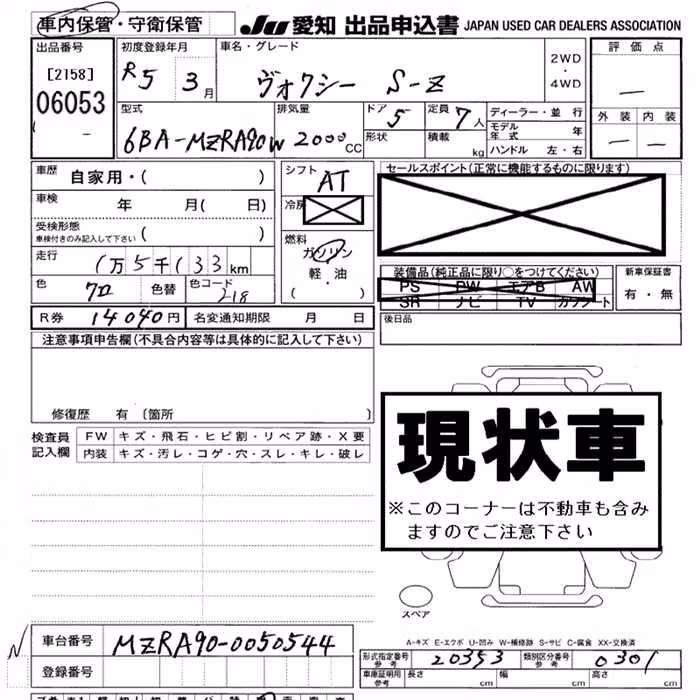 車内保管・守衛保管 JU 愛知 出品申込書 JAPAN USED CAR DEALERS ASSOCIATION
出品番号 初度登録年月 車名・グレード 2WD・4WD 評価点
[2158] R5 3月 ヴォクシー S-Z
06053 —
型式 排気量 ドア 5 定員 7人 ディーラー・並 行 外装 内装
6BA-MZRA90W 2000CC 形状 積載 kg モデル年式 年 — —
ハンドル 左・右
車歴 自家用・( ) シフト AT セールスポイント(正常に機能するものに限ります)
車検 年 月( 日) 冷房
受検形態 ( )
車検付きのみ記入して下さい
燃料 ガソリン
軽・油
・( )
走行 1万5千133km
装備品(純正品に限り○をつけてください) 新車保証書
PS PW エアB AW 有・無
SR ナビ TV カワシート
色 クロ 色替 色コード 218
R券 14040円 名変通知期限 月 日 後日品
注意事項申告欄(不具合内容等は具体的に記入して下さい)
修復歴 有〔箇所 〕
検査員記入欄 FW キズ・飛石・ヒビ割・リペア跡・X要
内装 キズ・汚レ・コゲ・穴・スレ・キレ・破レ
現状車
※このコーナーは不動車も含み
ますのでご注意下さい
スペア
A-キズ E-エクボ U-凹み W-補修跡 S-サビ C-腐食 XX-交換済
N 車台番号 MZRA90-0050544
登録番号
形式指定番号 参考 20353 類別区分番号 参考 0301
車庫証明用 参考 長さ cm 幅 cm 高さ cm